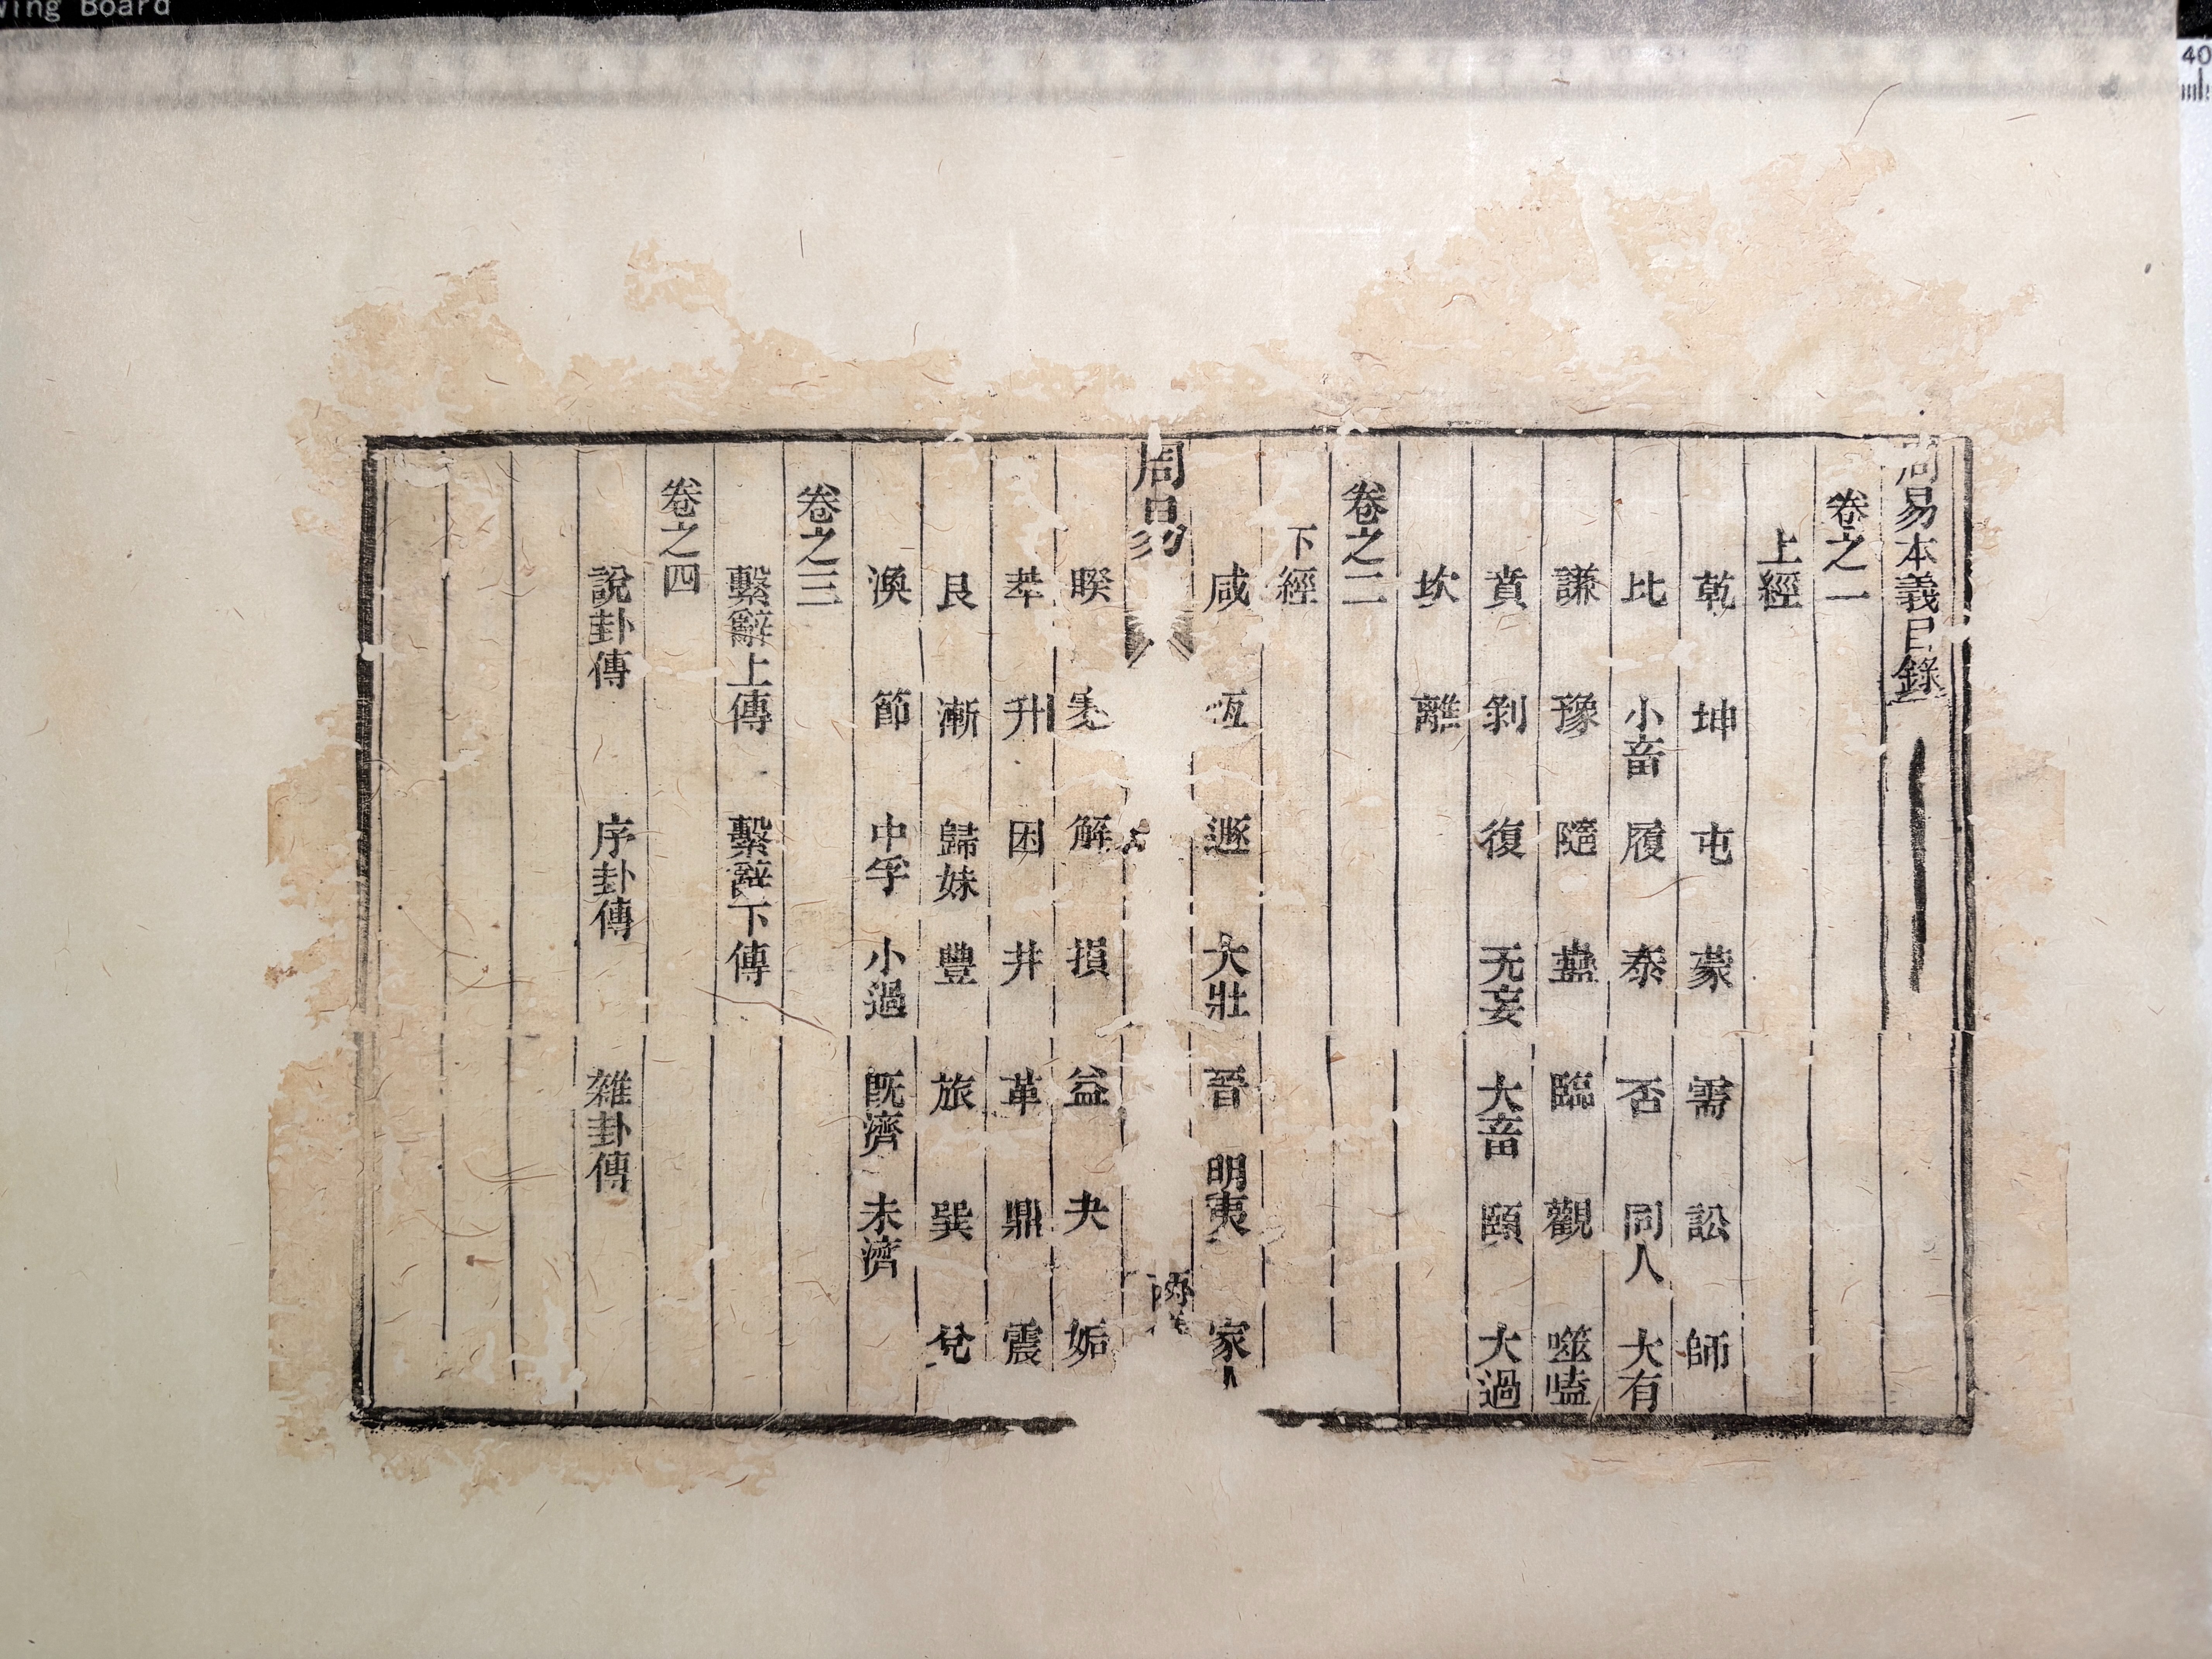 周易本義目錄
卷之一
上經
乾 坤 屯 蒙 需 訟 師
比 小畜 履 泰 否 同人 大有
謙 豫 隨 蠱 臨 觀 噬嗑
賁 剝 復 无妄 大畜 頤 大過
坎 離
卷之二
下經
咸 恆 遯 大壯 晉 明夷 家人
周易
睽 蹇 解 損 益 夬 姤
萃 升 困 井 革 鼎 震
艮 漸 歸妹 豐 旅 巽 兌
渙 節 中孚 小過 既濟 未濟
卷之三
繫辭上傳 繫辭下傳
卷之四
說卦傳 序卦傳 雜卦傳
wing Board
40